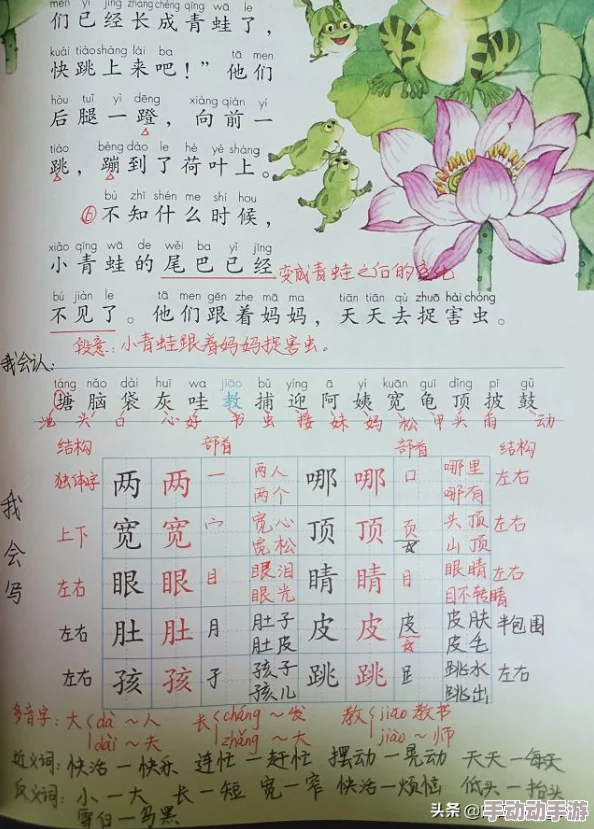 men yǐ jīng zhǎng chéng qīng wā le
们已经长成青蛙了，
kuài tiào shàng lái ba tā men
快跳上来吧！”他们
hòu tuǐ yì dēng xiàng qián yí
后腿一蹬，向前一
tiào bèng dào le hé yè shàng
跳，蹦到了荷叶上。
bù zhī shén me shí hou
⑥不知什么时候，
xiǎo qīng wā de wěi ba yǐ jīng
小青蛙的尾巴已经 变成青蛙之后的变化
bú jiàn le tā men gēn zhe mā ma tiān tiān qù zhuō hài chóng
不见了。他们跟着妈妈，天天去捉害虫。
段意：小青蛙跟着妈妈捉害虫。
我会认：
táng nǎo dài huī wa jiāo bǔ yíng ā yí kuān guī dǐng pī gǔ
①塘脑袋灰哇教捕迎阿姨宽龟顶披鼓
池 头 口 心 好 书 虫 接 妹 妈 松 甲 头 雨 动
结构 部首 部首 结构
我会写
独体字 两 两 一 两人 两个 哪 哪 口 哪里 哪有 左右
上下 宽 宽 宀 宽心 宽松 顶 顶 页 头顶 山顶 左右
左右 眼 眼 目 眼泪 眼光 睛 睛 目 眼睛 目不转睛 左右
左右 肚 肚 月 肚子 肚皮 皮 皮 皮 皮肤 皮毛 半包围
左右 孩 孩 子 孩子 孩儿 跳 跳 足 跳水 跳出 左右
多音字：大{dà～人 长{cháng～发 教{jiāo教书
dài～夫 zhǎng～大 jiào～师
近义词：快活—快乐 连忙—赶忙 摆动—晃动 天天—每天
反义词：小—大 长—短 宽—窄 快活—烦恼 低头—抬头
雪白—乌黑
头条 @手动动手游